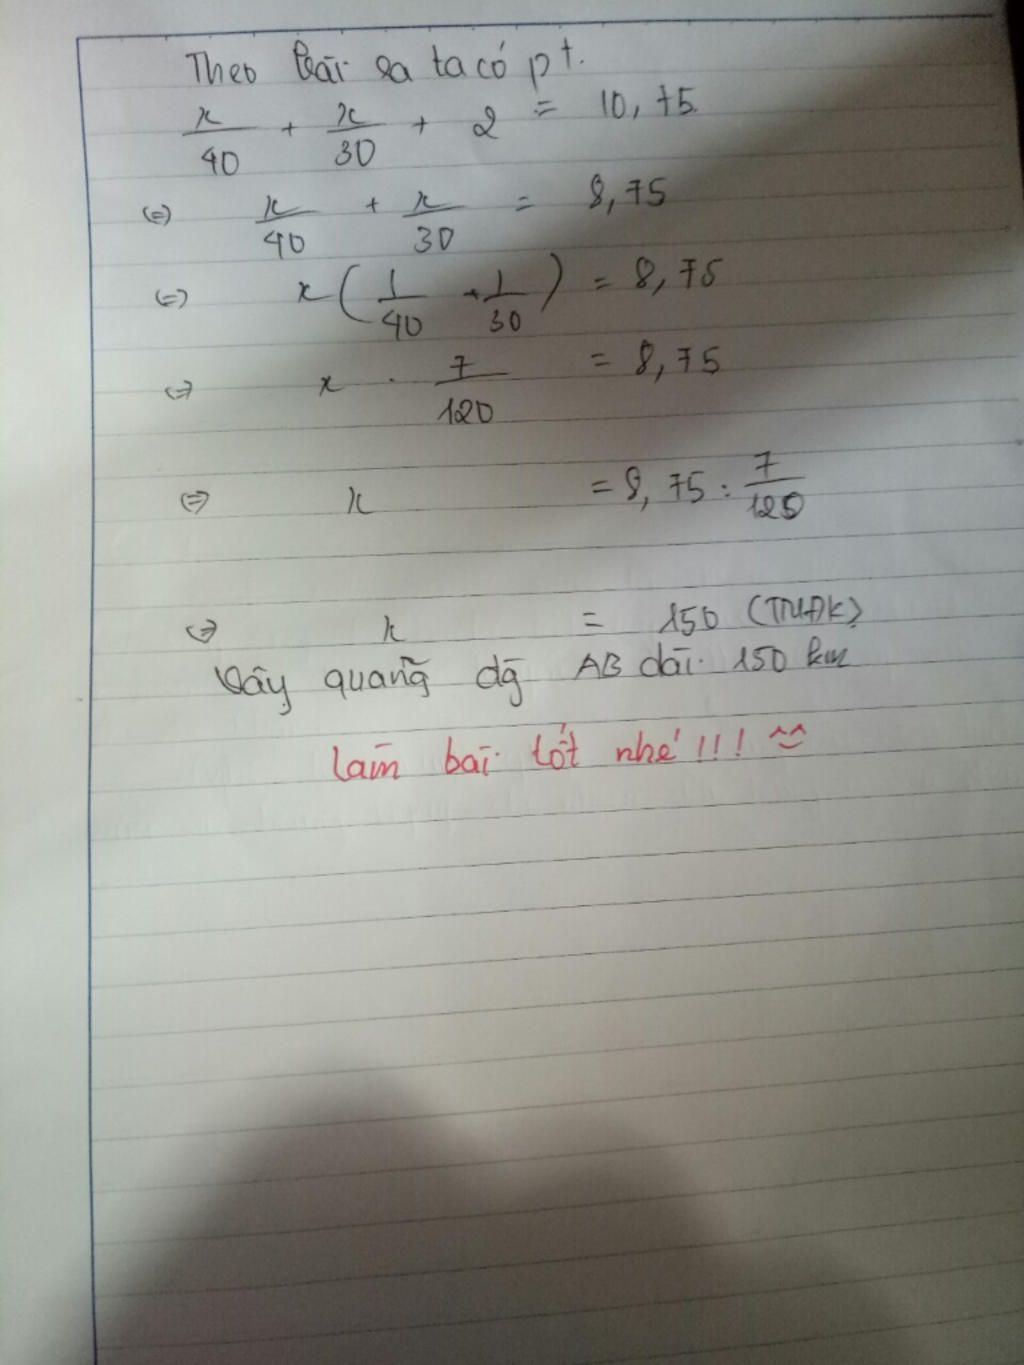 Theo bài ra ta có pt.
x/40 + x/30 + 2 = 10,75
(=) x/40 + x/30 = 8,75
(=) x(1/40 + 1/30) = 8,75
(=) x . 7/120 = 8,75
(=) x = 8,75 : 7/120
(=) x = 150 (TMĐK)
Vậy quãng đg AB dài 150 km
làm bài tốt nhé!!! ^^